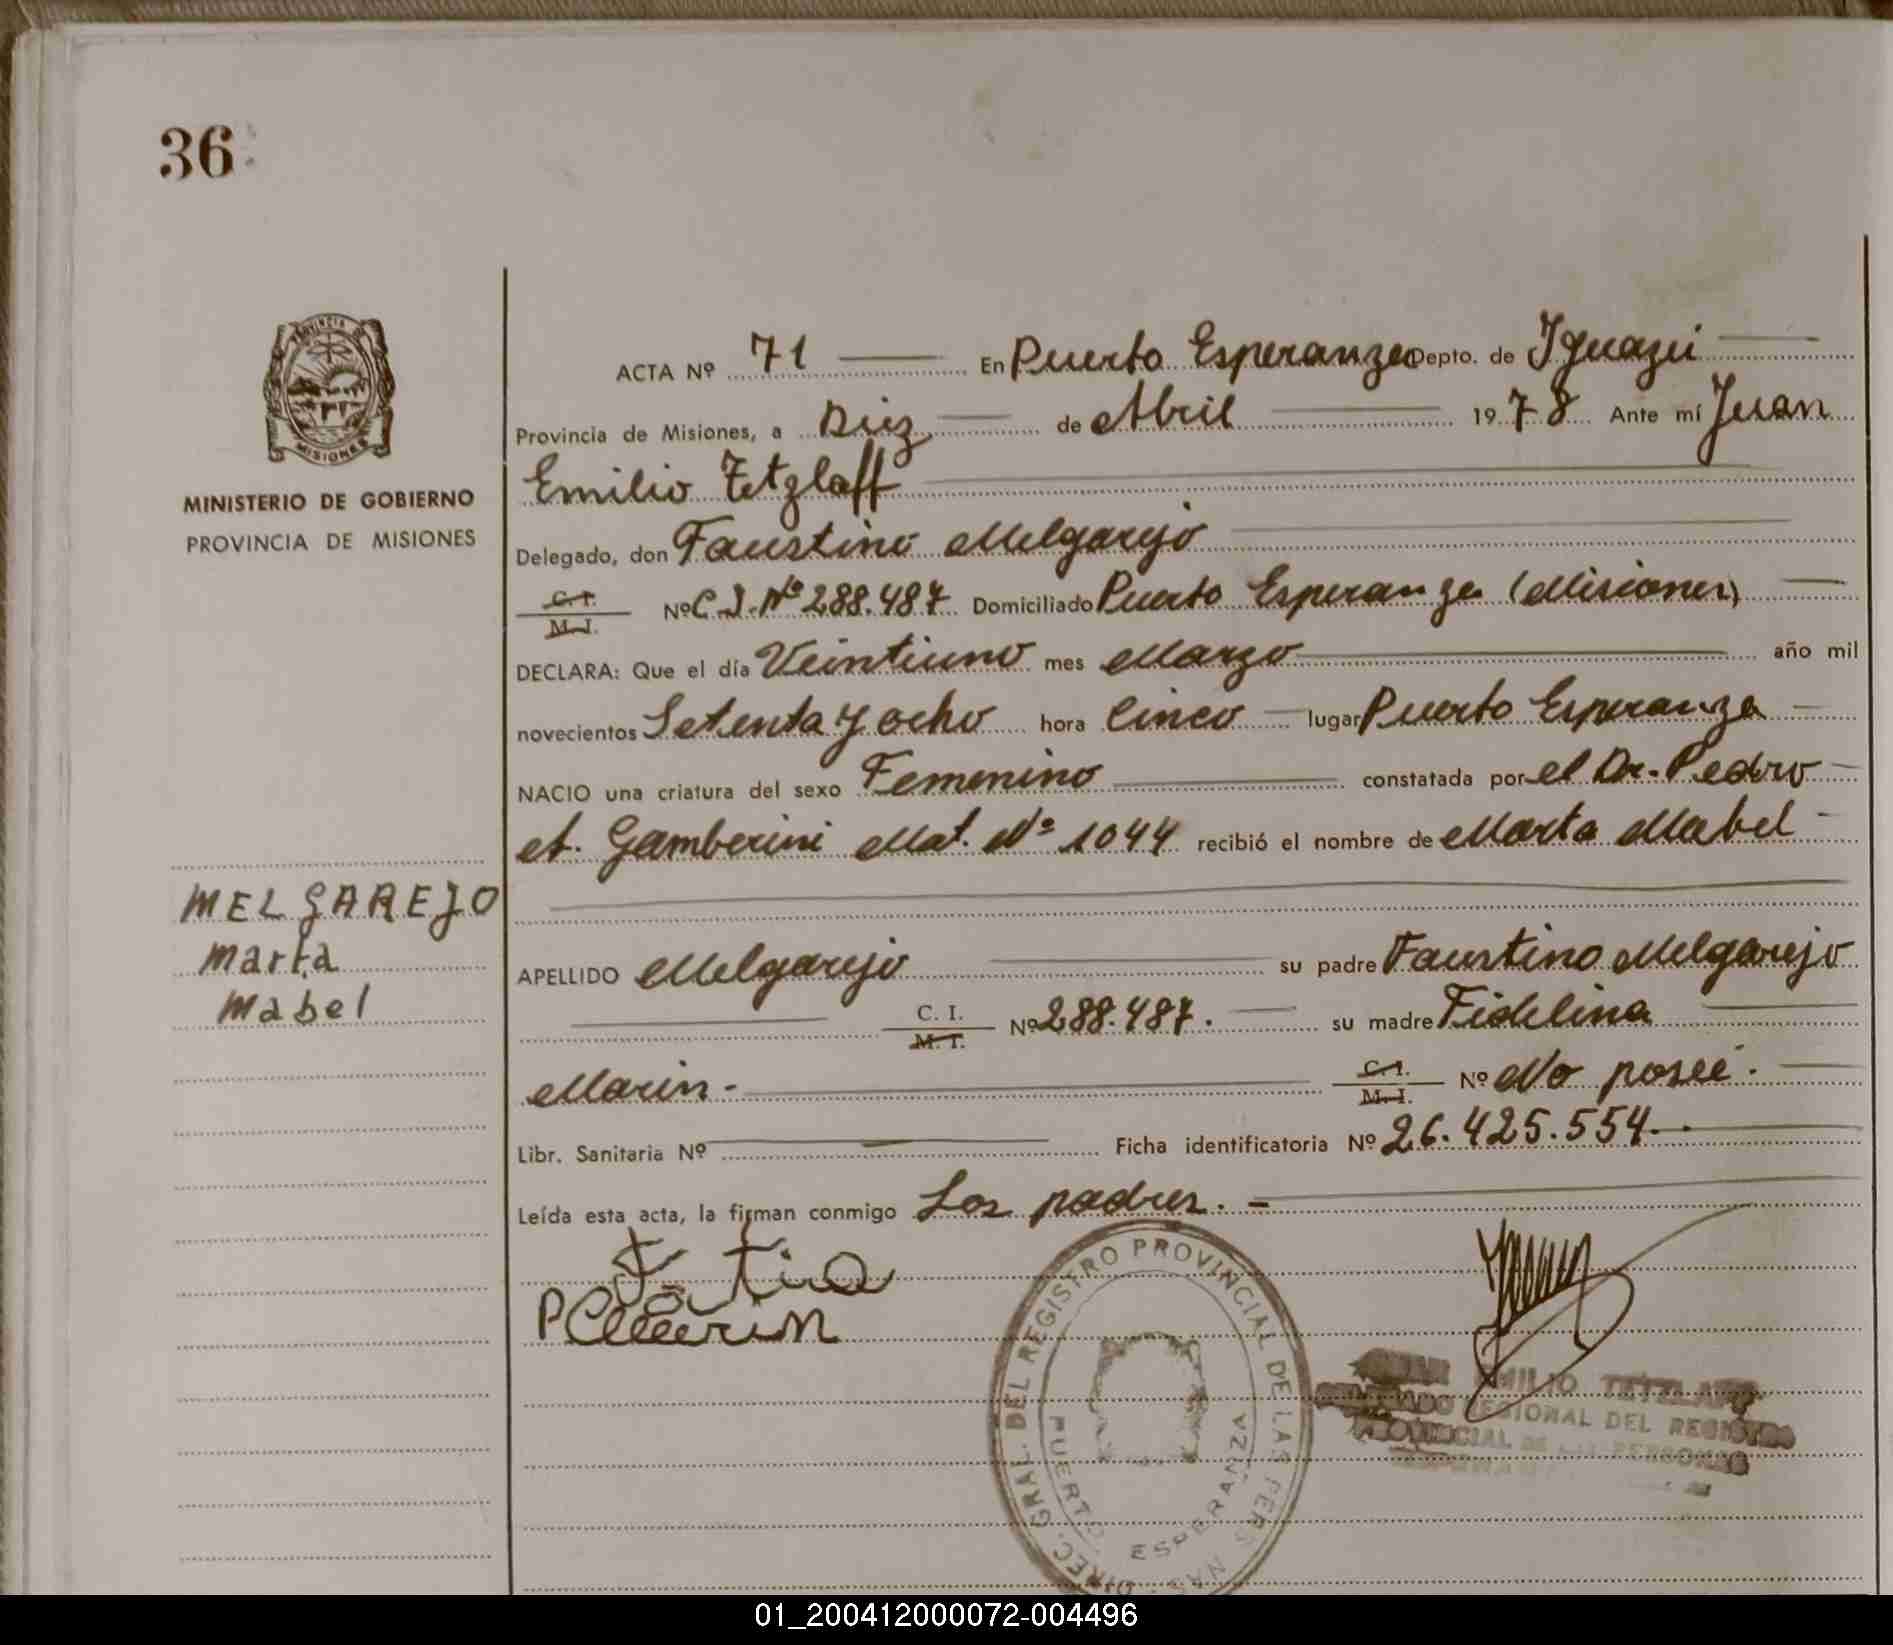 36
PROVINCIA DE
MISIONES
MINISTERIO DE GOBIERNO
PROVINCIA DE MISIONES
MELGAREJO
Marta
Mabel
ACTA Nº 71 En Puerto Esperanza Depto. de Iguazú
Provincia de Misiones, a Diez de Abril 1978 Ante mí Juan
Emilio Tetzlaff
Delegado, don Faustino Melgarejo
C. I.
M. I.
Nº C.I. Nº 288.487 Domiciliado Puerto Esperanza (Misiones)
DECLARA: Que el día Veintiuno mes Marzo año mil
novecientos Setenta y ocho hora Cinco lugar Puerto Esperanza
NACIO una criatura del sexo Femenino constatada por el Dr. Pedro
A. Gamberini Mat. Nº 1044 recibió el nombre de Marta Mabel
APELLIDO Melgarejo su padre Faustino Melgarejo
C. I.
M. I.
Nº 288.487. su madre Fidelina
Marin.- C. I.
M. I.
Nº No posee.
Libr. Sanitaria Nº Ficha identificatoria Nº 26.425.554.-
Leída esta acta, la firman conmigo Los padres. -
DIREC. GRAL. DEL REGISTRO PROVINCIAL DE LAS PERSONAS
PUERTO ESPERANZA
JUAN EMILIO TETZLAFF
DELEGADO REGIONAL DEL REGISTRO
PROVINCIAL DE LAS PERSONAS
01_200412000072-004496